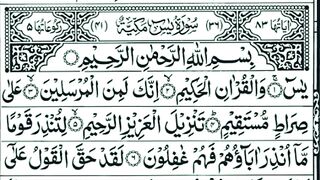 اٰیاتُهَا ۸۳ (۳۶) سُوْرَةُ یٰسٓ مَكِّیَّةٌ (۴۱) رُكُوْعَاتُهَا ۵
بِسْمِ اللّٰهِ الرَّحْمٰنِ الرَّحِیْمِ
یٰسٓ ۝۱ وَالْقُرْاٰنِ الْحَكِیْمِ ۝۲ اِنَّكَ لَمِنَ الْمُرْسَلِیْنَ ۝۳ عَلٰی
صِرَاطٍ مُّسْتَقِیْمٍ ۝۴ تَنْزِیْلَ الْعَزِیْزِ الرَّحِیْمِ ۝۵ لِتُنْذِرَ قَوْمًا
مَّاۤ اُنْذِرَ اٰبَآؤُهُمْ فَهُمْ غٰفِلُوْنَ ۝۶ لَقَدْ حَقَّ الْقَوْلُ عَلٰۤی